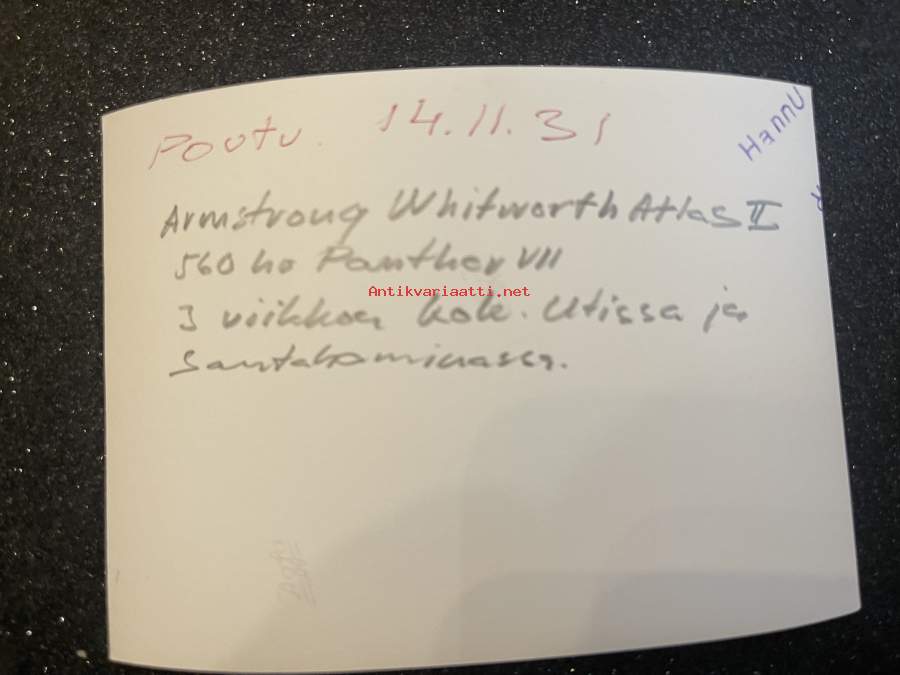 Poutu. 14.11.31
Hannu
Armstrong Whitworth Atlas II
560 ho Panther VII
Antikvariaatti.net
3 viikkoa kok. Utissa ja
Santahaminassa.